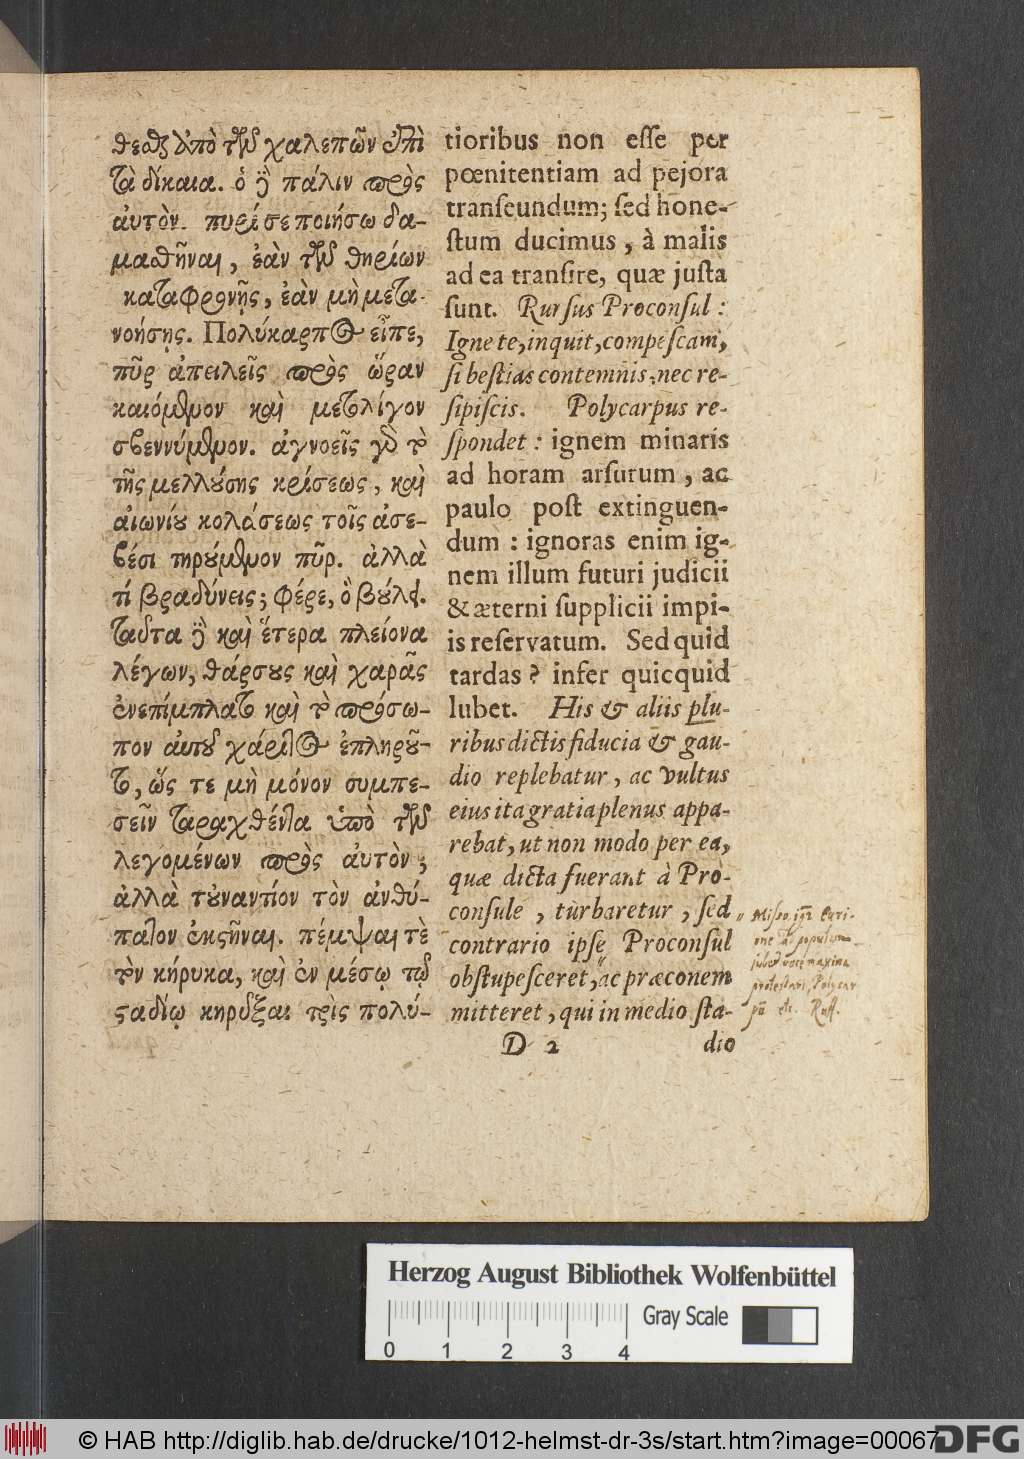 θεαζ ἀπὸ τῶν χαλεπῶν ἐπὶ
τὰ δίκαια. ὁ δὲ πάλιν πρὸς
αὐτὸν. πυρί σε ποιήσω δα-
μαθῆναι, ἐὰν τῶν θηρίων
καταφρονῇς, ἐὰν μὴ μετα-
νοήσῃς. Πολύκαρπος εἶπε,
πῦρ ἀπειλεῖς πρὸς ὥραν
καιόμενον καὶ μετ' ὀλίγον
σβεννύμενον. ἀγνοεῖς γὰρ τὸ
τῆς μελλούσης κρίσεως, καὶ
αἰωνίου κολάσεως τοῖς ἀσε-
βέσι τηρούμενον πῦρ. ἀλλὰ
τί βραδύνεις; φέρε, ὃ βούλει.
ταῦτα δὲ καὶ ἕτερα πλείονα
λέγων, θάρσους καὶ χαρᾶς
ἐνεπίμπλατο καὶ τὸ πρόσω-
πον αὐτοῦ χάριτος ἐπληροῦ-
το, ὥς τε μὴ μόνον συμπε-
σεῖν ταραχθέντα ὑπὸ τῶν
λεγομένων πρὸς αὐτὸν;
ἀλλὰ τὐναντίον τὸν ἀνθύ-
πατον ἐκστῆναι. πέμψαι τὲ
τὸν κήρυκα, καὶ ἐν μέσῳ τῷ
σταδίῳ κηρύξαι τρὶς πολύ-
tioribus non esse per
pœnitentiam ad pejora
transeundum; sed hone-
stum ducimus, à malis
ad ea transire, quæ justa
sunt. Rursus Proconsul:
Igne te, inquit, compescam,
si bestias contemnis, nec re-
sipiscis. Polycarpus re-
spondet: ignem minaris
ad horam arsurum, ac
paulo post extinguen-
dum: ignoras enim ig-
nem illum futuri judicii
& æterni supplicii impi-
is reservatum. Sed quid
tardas? infer quicquid
lubet. His & aliis plu-
ribus dictis fiducia & gau-
dio replebatur, ac vultus
eius ita gratia plenus appa-
rebat, ut non modo per ea,
quæ dicta fuerant à Pro-
consule, turbaretur, sed
contrario ipse Proconsul
obstupesceret, ac præconem
mitteret, qui in medio sta-
D 2 dio
populum
maxima
protestari, Polycar
Ruff.
Herzog August Bibliothek Wolfenbüttel
Gray Scale
0 1 2 3 4
© HAB http://diglib.hab.de/drucke/1012-helmst-dr-3s/start.htm?image=00067
DFG